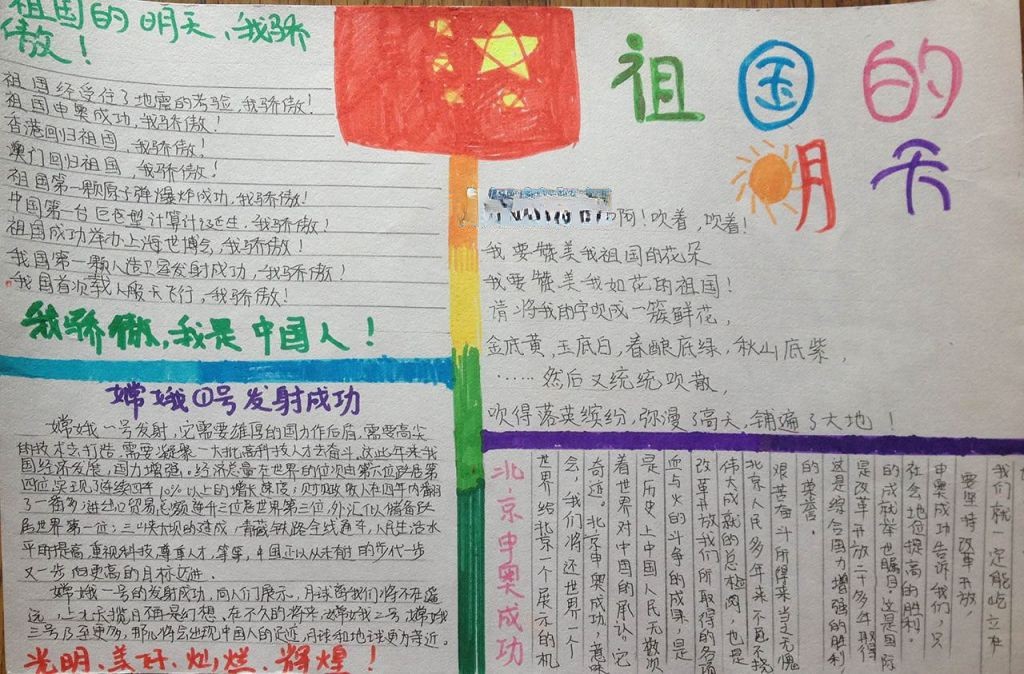 祖国的明天，我骄
傲！
祖国经受住了地震的考验，我骄傲！
祖国申奥成功，我骄傲！
香港回归祖国，我骄傲！
澳门回归祖国，我骄傲！
祖国第一颗原子弹爆炸成功，我骄傲！
中国第一台巨色型计算计诞生，我骄傲！
祖国成功举办上海世博会，我骄傲！
我国第一颗人造卫星发射成功，我骄傲！
我国首次载人般天飞行，我骄傲！
我骄傲，我是中国人！
祖国的
明天
啊！吹着，吹着！
我要赞美我祖国的花朵
我要赞美我如花的祖国！
请将我的字吹成一簇鲜花，
金底黄，玉底白，春酿底绿，秋山底紫，
……然后又统统吹散，
吹得落英缤纷，弥漫了高天，铺遍了大地！
嫦娥①号发射成功
嫦娥一号发射，它需要雄厚的国力作后盾，需要高尖
的技术去打造，需要凝聚一大批高科技人才去奋斗。这些年来我
国经济发展，国力增强。经济总量在世界的位次由第六位跃居第
四位，实现了连续四年10%以上的增长速度；财政收入在四年内翻
了一番多；进出口贸易总额连升三位居世界第三位，外汇储备跃
居世界第一位；三峡大坝的建成，青藏铁路全线通车，人民生活水
平的提高，重视科技，尊重人才，等等，中国正以从未有的步伐一步
又一步向更高的目标
嫦娥一号的发射成功，向人们展示，月球离我们将不在遥
远，上九天揽月不再是幻想，在不久的将来，嫦娥二号，嫦娥
三号乃至更多，那儿将会出现中国人的足迹，月球和地球更为亲近。
光明、美好、灿烂、辉煌！
北京申奥成功
我们就一定能屹立在
要坚持改革开放，
申奥成功告诉我们，只
社会地位提高的胜利。
的成就举世瞩目。这是国际
是改革开放二十多年取得
这是综合国力增强的胜利，
的荣誉。
艰苦奋斗所得来当之无愧
北京人民多年来不屈不挠
伟大成就的总检阅，也是
改革开放我们所取得的各项
血与火的斗争的成果，是
是历史上中国人民无数次
着世界对中国的承认，它
奇迹。北京申奥成功，意味
会，我们将还世界一个
世界给北京一个展示的机